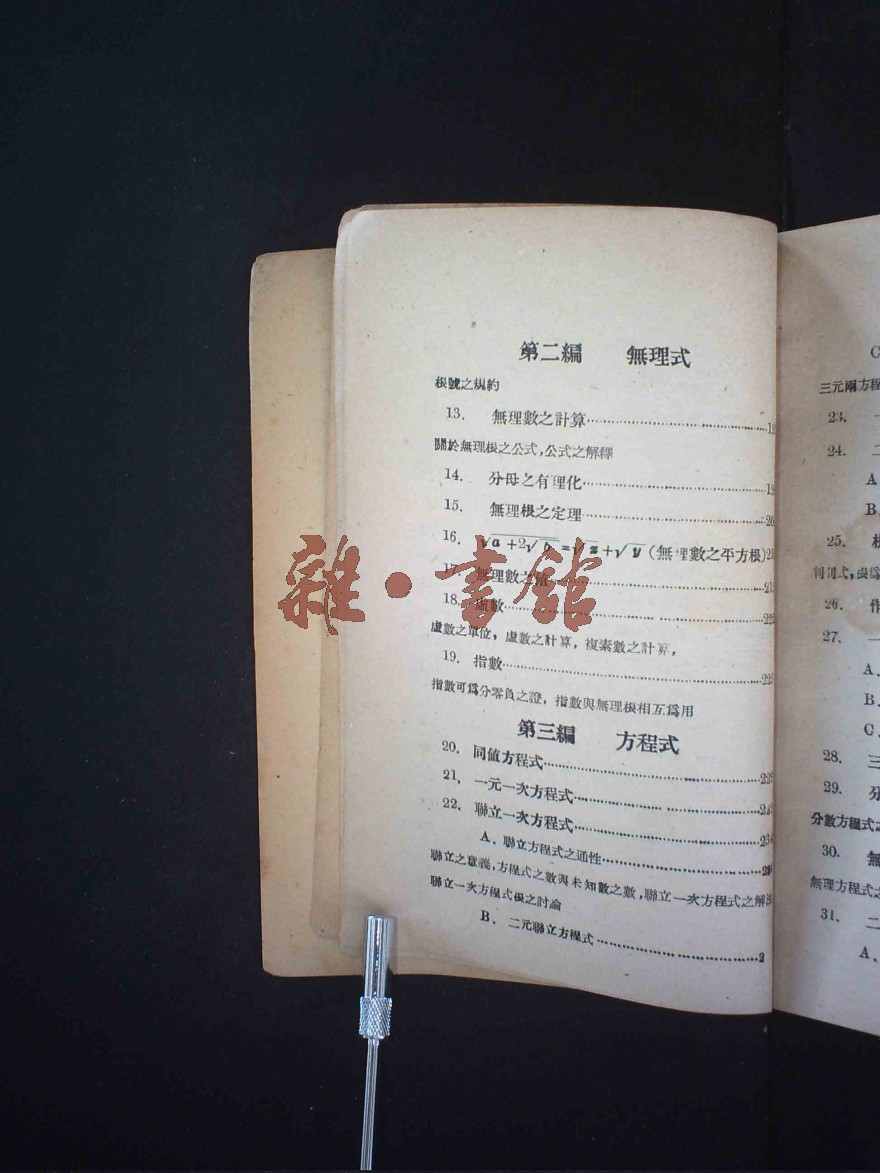 第二編 無理式
根號之規約
13. 無理數之計算
關於無理根之公式,公式之解釋
14. 分母之有理化
15. 無理根之定理
16. √a+2√b=√x+√y(無理數之平方根)
17. 無理數之
18. 虛數
虛數之單位,虛數之計算,複素數之計算,
19. 指數
指數可爲分零負之證,指數與無理根相互爲用
第三編 方程式
20. 同値方程式
21. 一元一次方程式
22. 聯立一次方程式
A. 聯立方程式之通性
聯立之意義,方程式之數與未知數之數,聯立一次方程式之解法
聯立一次方程式根之討論
B. 二元聯立方程式
雜·書館
C
三元兩方程
23.
24. 二
A
B.
25. 根
判別式,
26. 作
27. 一
A.
B.
C.
28. 三
29. 分
分數方程式之
30. 無
無理方程式之
31. 二
A.